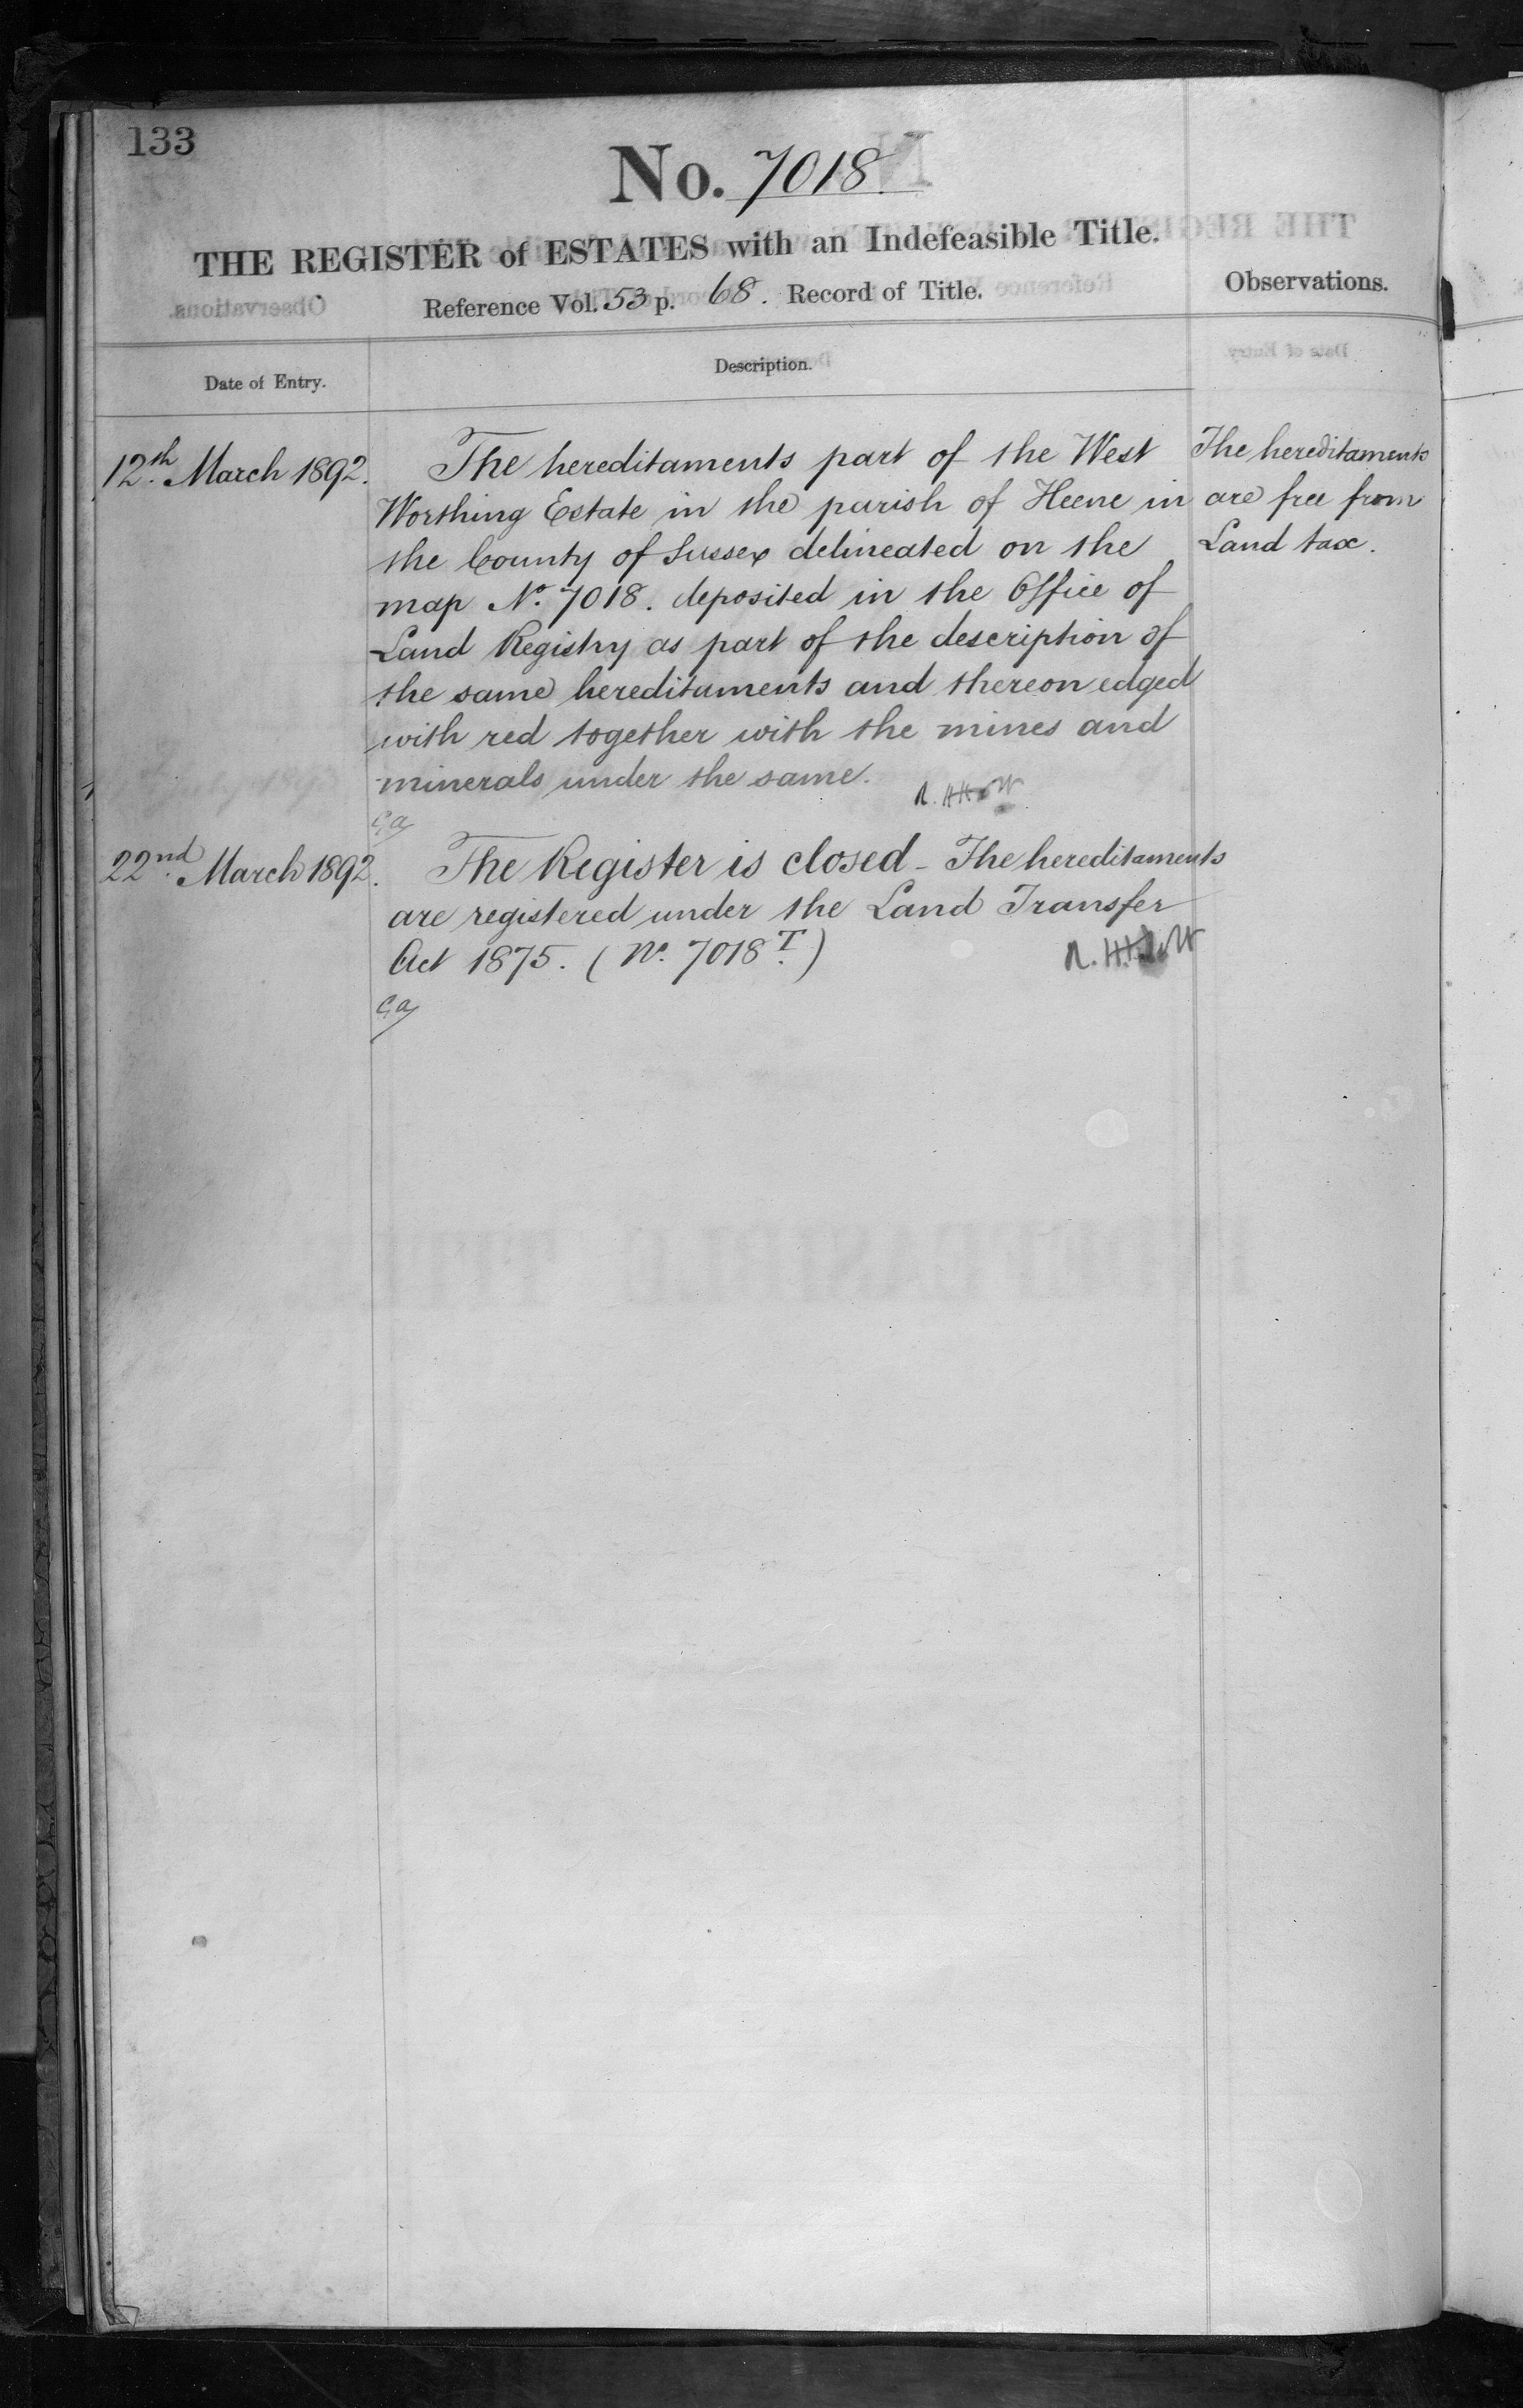 133
No. 7018
THE REGISTER of ESTATES with an Indefeasible Title.
Reference Vol. 53 p. 68. Record of Title.
Observations.
Date of Entry.
Description.
12th. March 1892.
The hereditaments part of the West
Worthing Estate in the parish of Heene in
the County of Sussex delineated on the
map No. 7018. deposited in the Office of
Land Registry as part of the description of
the same hereditaments and thereon edged
with red together with the mines and
minerals under the same.
The hereditaments
are free from
Land tax.
22nd. March 1892.
The Register is closed - The hereditaments
are registered under the Land Transfer
Act 1875. (No. 7018T.)